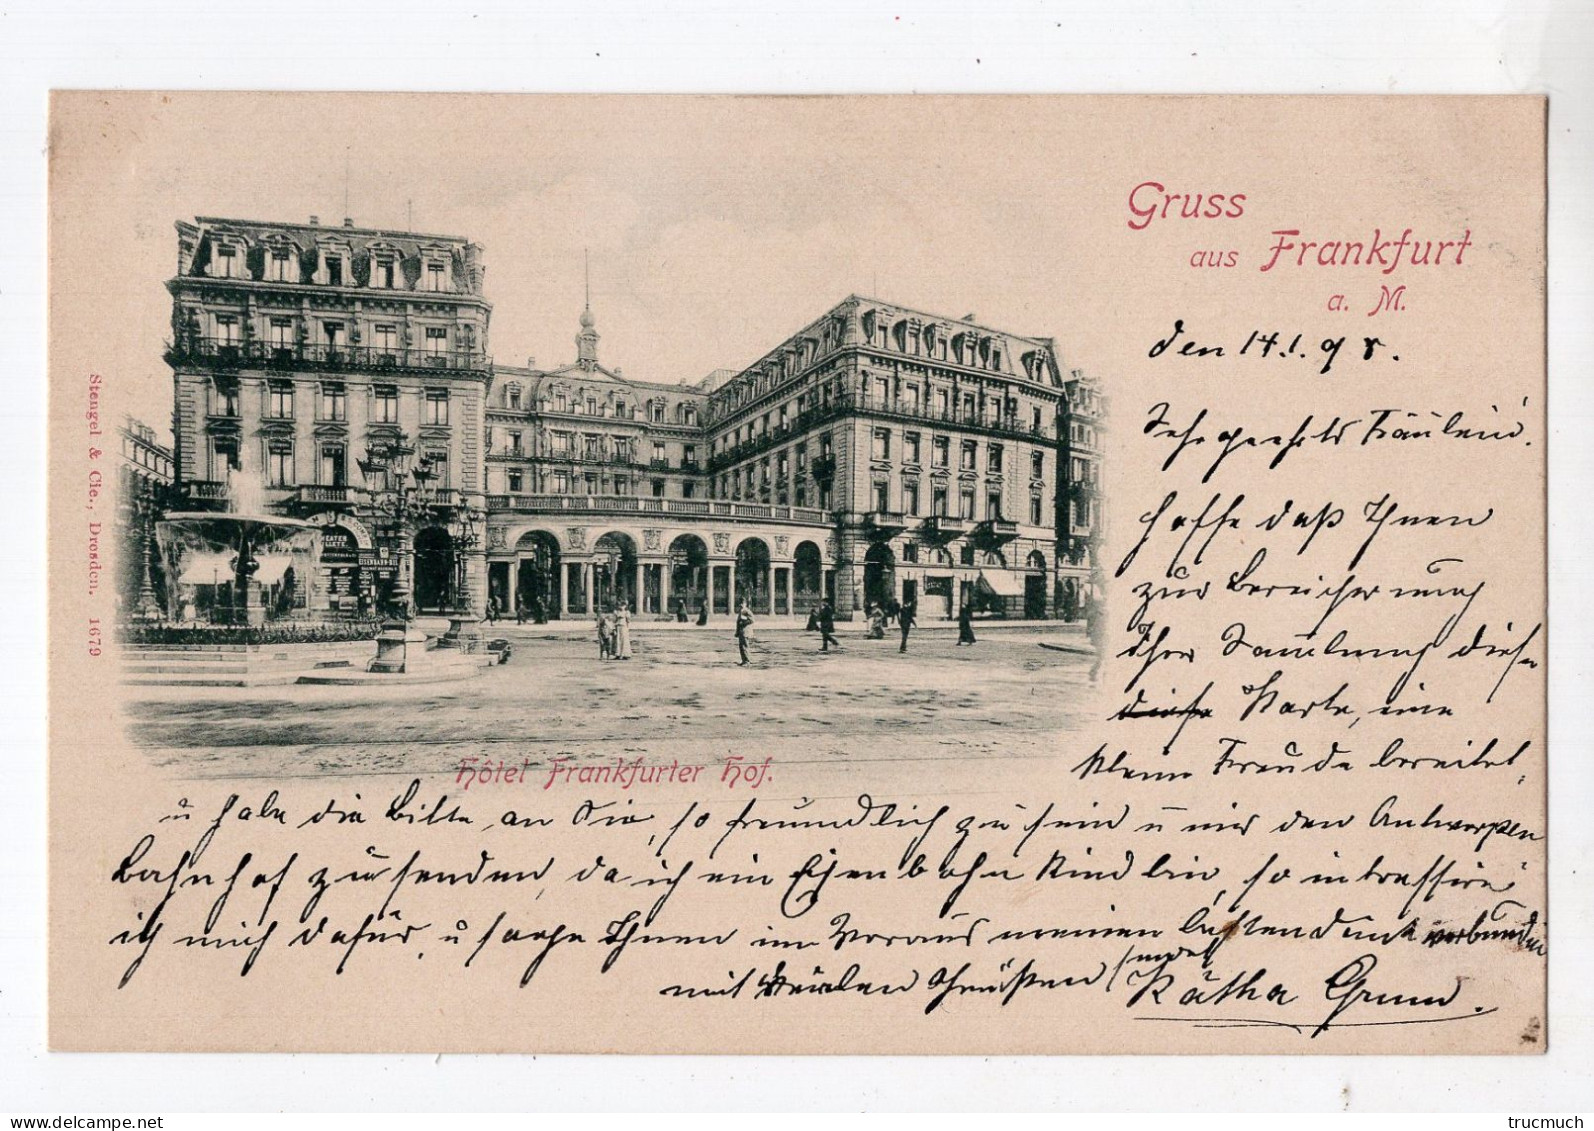 Gruss
aus Frankfurt
a. M.
den 14.1.98.
Sehr geehrtes Fräulein!
Hoffe daß Ihnen
zur Bereicherung
Ihrer Sammlung diese
diese Karte, eine
kleine Freude bereitet,
Hôtel Frankfurter Hof.
u habe die Bitte an Sie, so freundlich zu sein u mir den Antwerpen
Bahnhof zu senden, da ich ein Eisenbahn Kind bin, so intressire
ich mich dafür, u sage Ihnen im Voraus meinen besten Dank verbunden
mit vielen Grüßen sendet Kätha Grund.
Stengel & Cie., Dresden. 1679
THEATER
EISENBAHN-BIL
www.delcampe.net
trucmuch